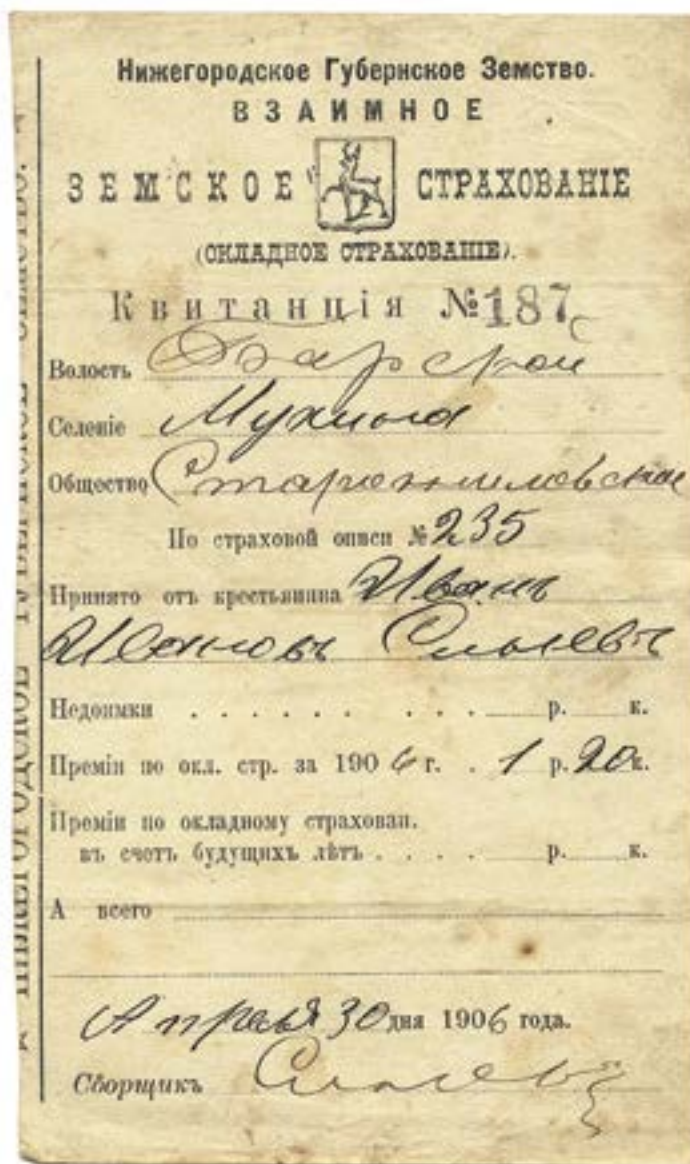 Нижегородское Губернское Земство.
ВЗАИМНОЕ
ЗЕМСКОЕ СТРАХОВАНІЕ
(ОКЛАДНОЕ СТРАХОВАНІЕ).
Квитанція №187
Волость
Селеніе Мухина
Общество
По страховой описи № 235
Принято отъ крестьянина Иванъ
Ивановъ
Недоимки . . . . . . . . . р. к.
Преміи по окл. стр. за 1906 г. . 1 р. 20 к.
Преміи по окладному страхован.
въ счетъ будущихъ лѣтъ . . . . р. к.
А всего
Апреля 30 дня 1906 года.
Сборщикъ